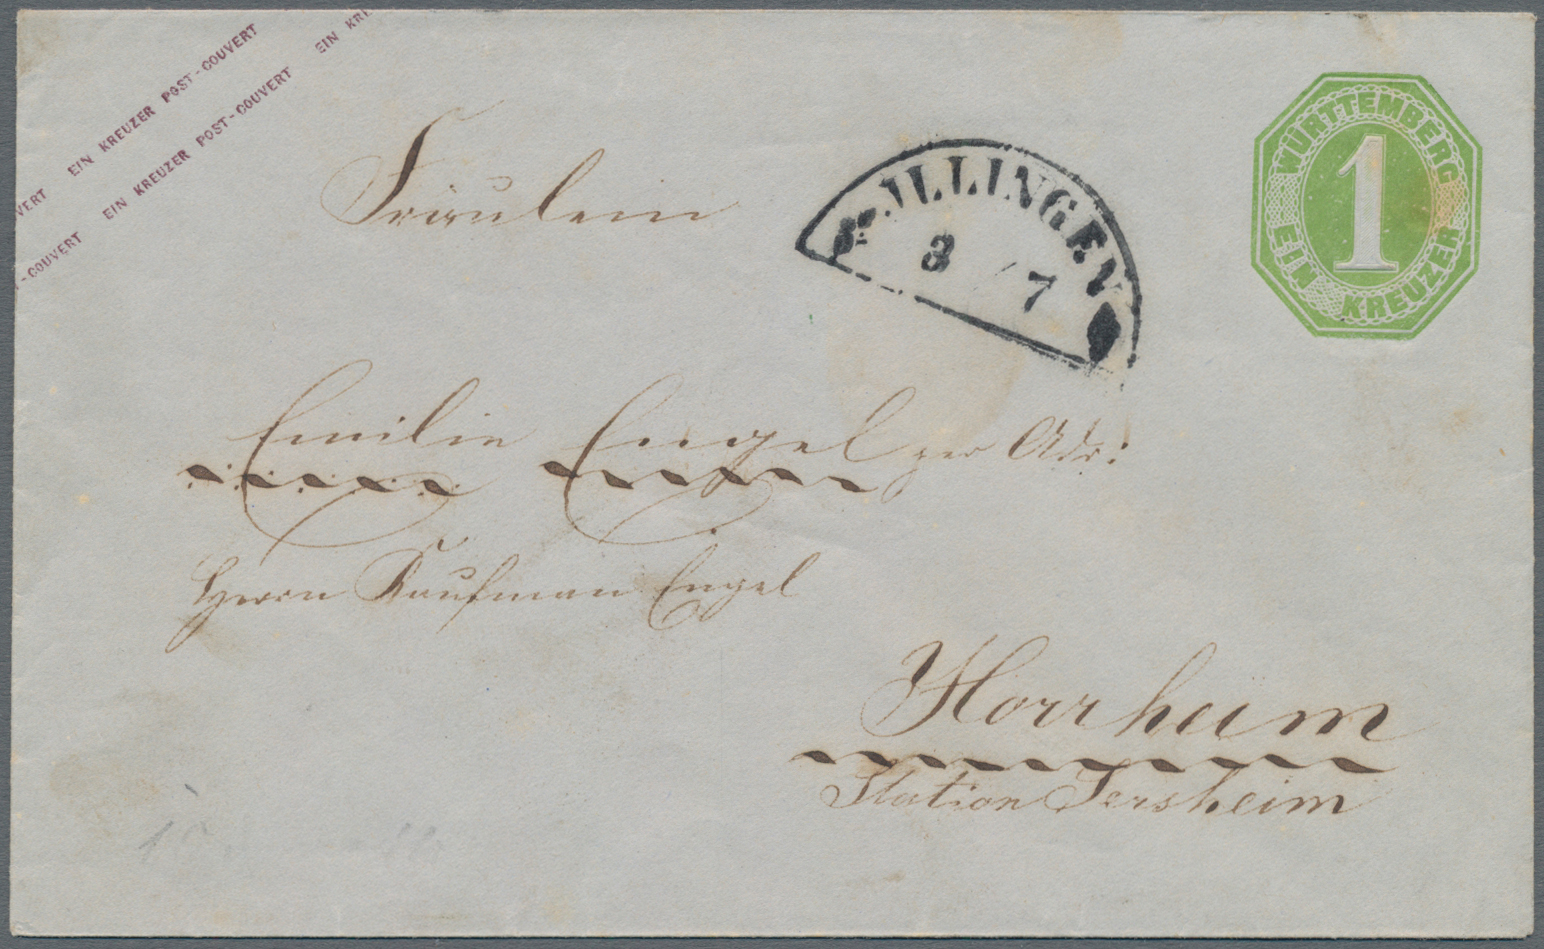 EIN KREUZER POST-COUVERT EIN KRE
VERT EIN KREUZER POST-COUVERT
-COUVERT
WÜRTTEMBERG
1
EIN KREUZER
ILLINGEN
3 / 7
Fräulein
Emilie Engel per Adr:
Herrn Kaufman Engel
Horrheim
Station Sersheim